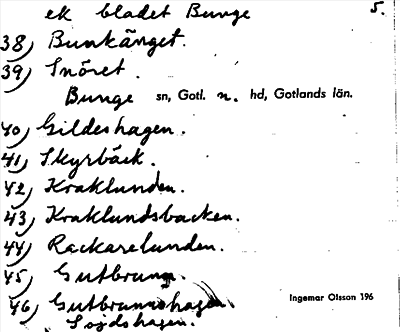 ek bladet Bunge 5.
38) Bunkänget.
39) Snöret.
Bunge sn, Gotl. n. hd, Gotlands län.
40) Gildeshagen.
41) Skyrbäck.
42) Kraklunden.
43) Kraklundsbacken.
44) Rackarelunden.
45) Gutbrunn.
46) Gutbrunnshagen. Ingemar Olsson 196
Sojdshagen.